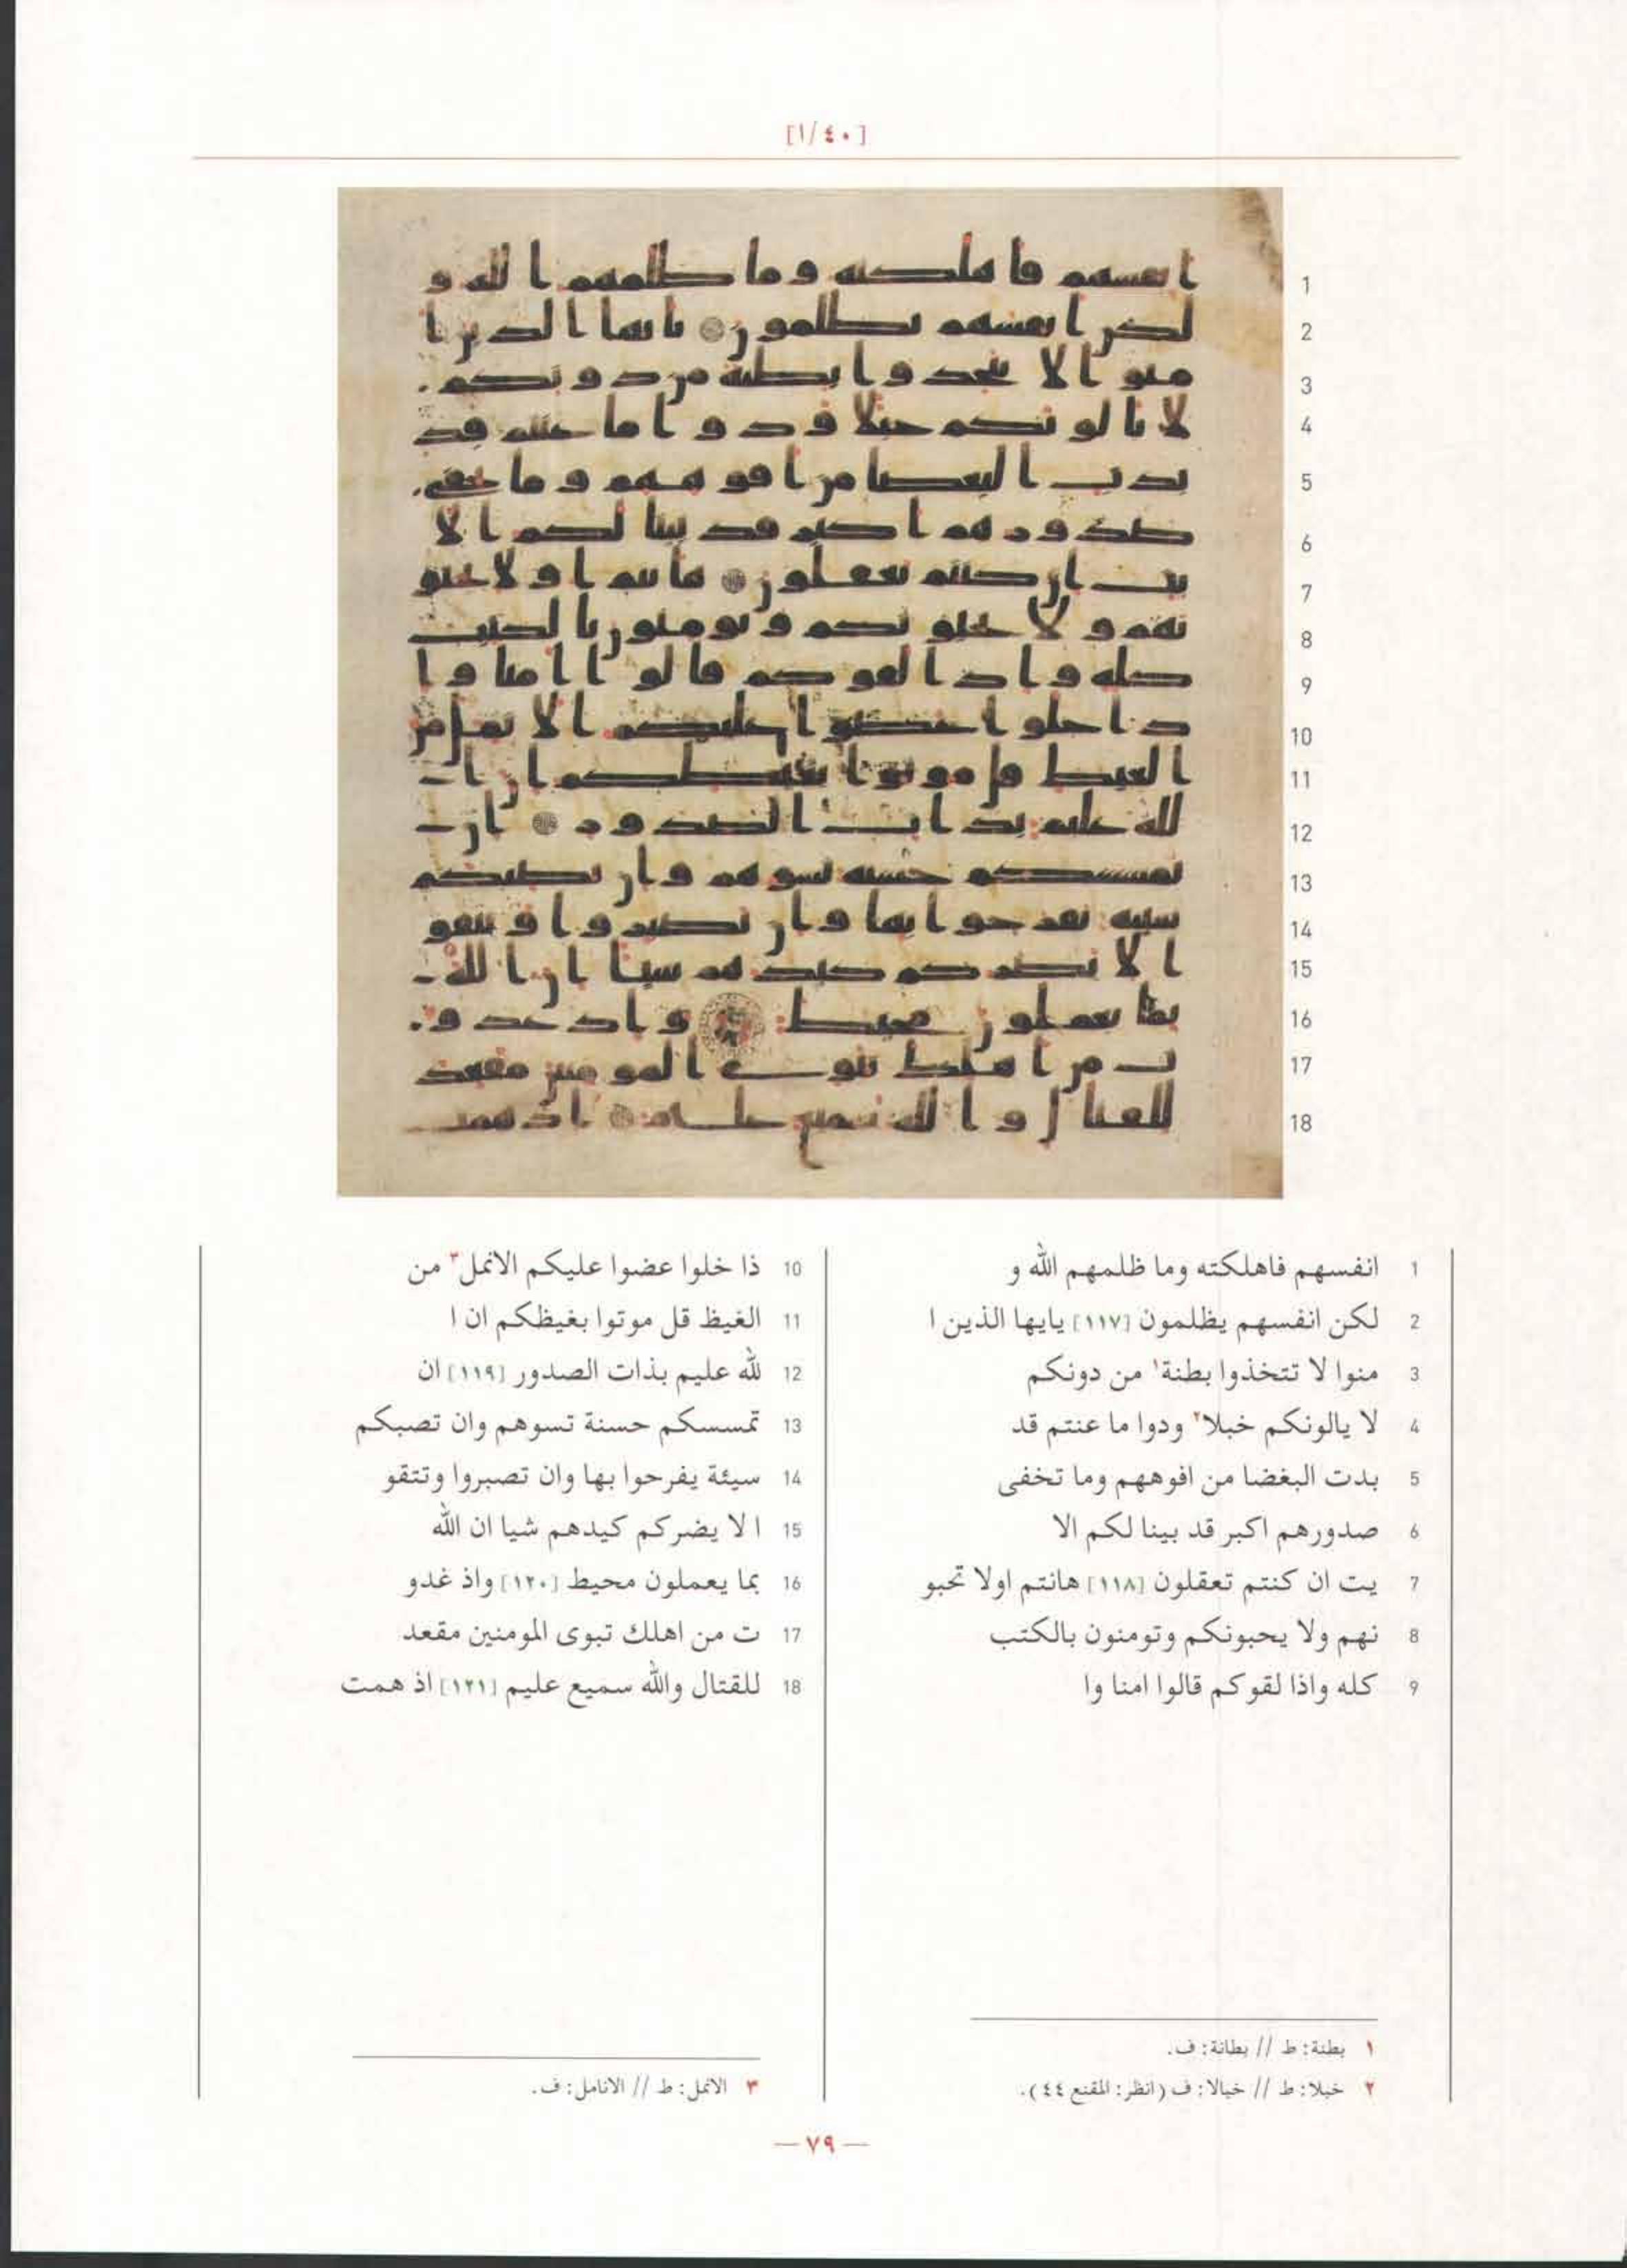 [٤٠/١]
1 انفسهم فاهلكته وما ظلمهم الله و
2 لكن انفسهم يظلمون [١١٧] يايها الذين ا
3 منوا لا تتخذوا بطنة١ من دونكم
4 لا يالونكم خبلا٢ ودوا ما عنتم قد
5 بدت البغضا من افوههم وما تخفى
6 صدورهم اكبر قد بينا لكم الا
7 يت ان كنتم تعقلون [١١٨] هانتم اولا تحبو
8 نهم ولا يحبونكم وتومنون بالكتب
9 كله واذا لقوكم قالوا امنا وا
10 ذا خلوا عضوا عليكم الانمل٣ من
11 الغيظ قل موتوا بغيظكم ان ا
12 لله عليم بذات الصدور [١١٩] ان
13 تمسسكم حسنة تسوهم وان تصبكم
14 سيئة يفرحوا بها وان تصبروا وتتقو
15 ا لا يضركم كيدهم شيا ان الله
16 بما يعملون محيط [١٢٠] واذ غدو
17 ت من اهلك تبوى المومنين مقعد
18 للقتال والله سميع عليم [١٢١] اذ همت
١ بطنة: ط // بطانة: ف.
٢ خبلا: ط // خبالا: ف (انظر: المقنع ٤٤).
٣ الانمل: ط // الانامل: ف.
— ٧٩ —